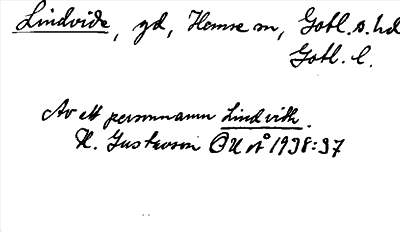 Lindvide, gd, Hemse sn, Gotl. s. hd
Gotl. l.
Av ett personnamn Lindvith.
H. Gustavson OUÅ 1938:37